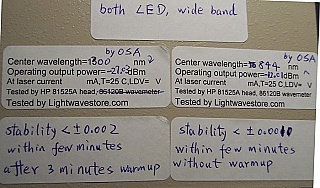 both LED, wide band
by OSA
Center wavelength=1300 nm
Operating output power= dBm
At laser current mA,T=25 C,LDV= V
Tested by HP 81525A head, 86120B wavemeter
Tested by Lightwavestore.com
stability <±0.002
within few minutes
after 3 minutes warmup
by OSA
Center wavelength= 844 nm
Operating output power= dBm
At laser current mA,T=25 C,LDV= V
Tested by HP 81525A head, 86120B wavemeter
Tested by Lightwavestore.com
stability <
within few minutes
without warmup